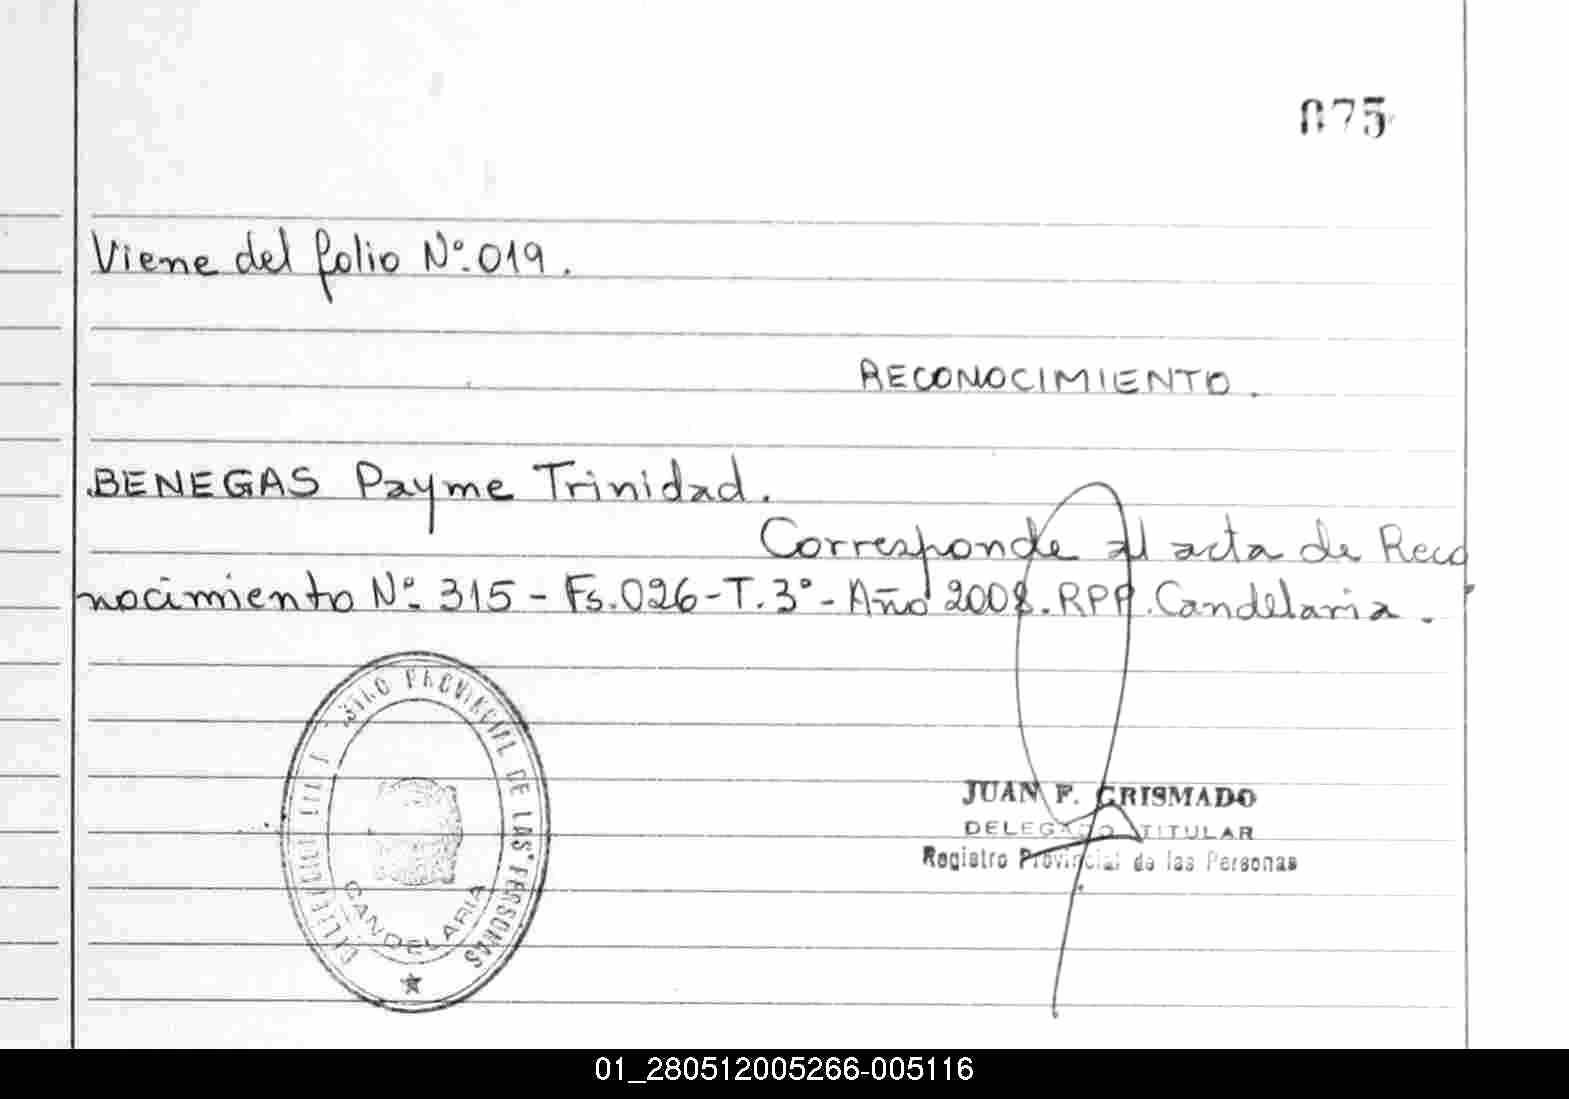 075
Viene del folio Nº.019.
RECONOCIMIENTO.
BENEGAS Payme Trinidad.
Corresponde al acta de Reco
nocimiento Nº. 315 - Fs.026 - T.3º - Año 2008. RPP. Candelaria.
PROVINCIAL DE LAS PERSONAS
CANDELARIA
JUAN F. CRISMADO
DELEGADO TITULAR
Registro Provincial de las Personas
01_280512005266-005116